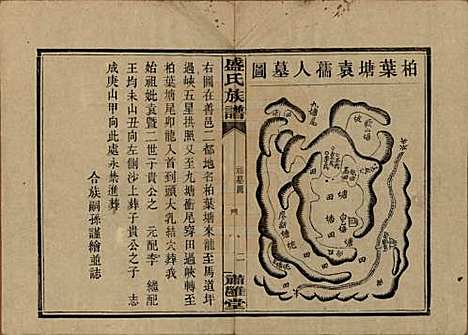 柏葉塘袁孺人墓圖
九塘尾
塘
田
中心塘
田
塘
田
盛氏族譜
祖墓圖
二
肅雝堂
右圖在善邑二都地名柏葉塘來龍至馬道坪
過峽五星拱照又至九塘衝尾穿田過峽轉至
柏葉塘尾卯龍入首到頭大乳結穴葬我
始祖妣袁暨二世子貴公之 元配李 總配
王均未山丑向左側沙上葬子貴公之子 志
成庚山甲向此永禁進葬
合族嗣孫謹繪並誌